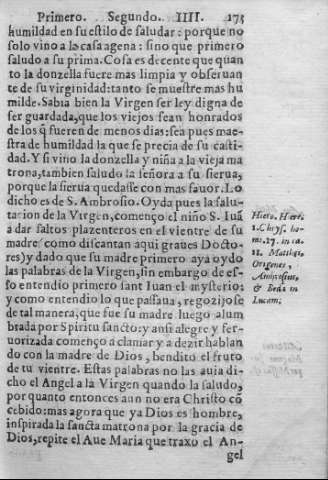 Primero. Segundo. IIII. 173
humildad en su estilo de saludar: porque no
solo vino a la casa agena: sino que primero
saludo a su prima. Cosa es decente que quan
to la donzella fuere mas limpia y obseruan
te de su virginidad: tanto se muestre mas hu
milde. Sabia bien la Virgen ser ley digna de
ser guardada, que los viejos sean honrados
de los q̃ fueren de menos dias: sea pues mae-
stra de humildad la que se precia de su casti-
dad. Y si vino la donzella y niña a la vieja ma
trona, tambien saludo la señora a su sierua,
porque la sierua quedasse con mas fauor. Lo
dicho es de S. Ambrosio. Oyda pues la salu-
tacion de la Virgen, començo el niño S. Iuã
a dar saltos plazenteros en el vientre de su
madre (como discantan aqui graues Docto-
res) y dado que su madre primero aya oydo
las palabras de la Virgen, sin embargo de es-
so entendio primero sant Iuan el mysterio:
y como entendio lo que passaua, regozijose
de tal manera, que fue su madre luego alum
brada por Spiritu sancto: y ansi alegre y fer-
uorizada començo a clamar y a dezir hablan
do con la madre de Dios, bendito el fruto
de tu vientre. Estas palabras no las auia di-
cho el Angel a la Virgen quando la saludo,
por quanto entonces aun no era Christo cõ
cebido: mas agora que ya Dios es hombre,
inspirada la sancta matrona por la gracia de
Dios, repite el Aue Maria que traxo el An-
gel
Hiero. Here.
1. Chrys. ho-
mi. 27. in ca.
11. Matthæi,
Origenes,
Ambrosius,
& Beda in
Lucam.